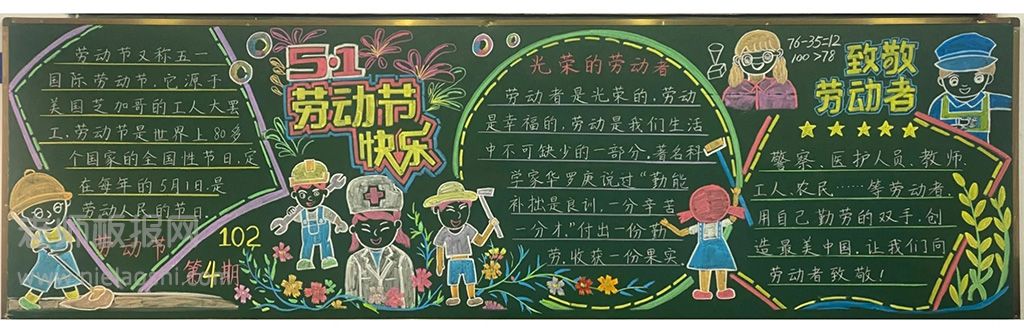 劳动节又称五一
国际劳动节,它源于
美国芝加哥的工人大罢
工,劳动节是世界上80多
个国家的全国性节日,定
在每年的5月1日.是
劳动人民的节日.
劳动节
102
第4期
5·1
劳动节
快乐
光荣的劳动者
劳动者是光荣的,劳动
是幸福的,劳动是我们生活
中不可缺少的一部分,著名科
学家华罗庚说过“勤能
补拙是良训,一分辛苦
一分才.”付出一份勤
劳,收获一份果实.
76-35=12
100>78
致敬
劳动者
警察、医护人员、教师、
工人、农民……等劳动者,
用自己勤劳的双手,创
造最美中国,让我们向
劳动者致敬!